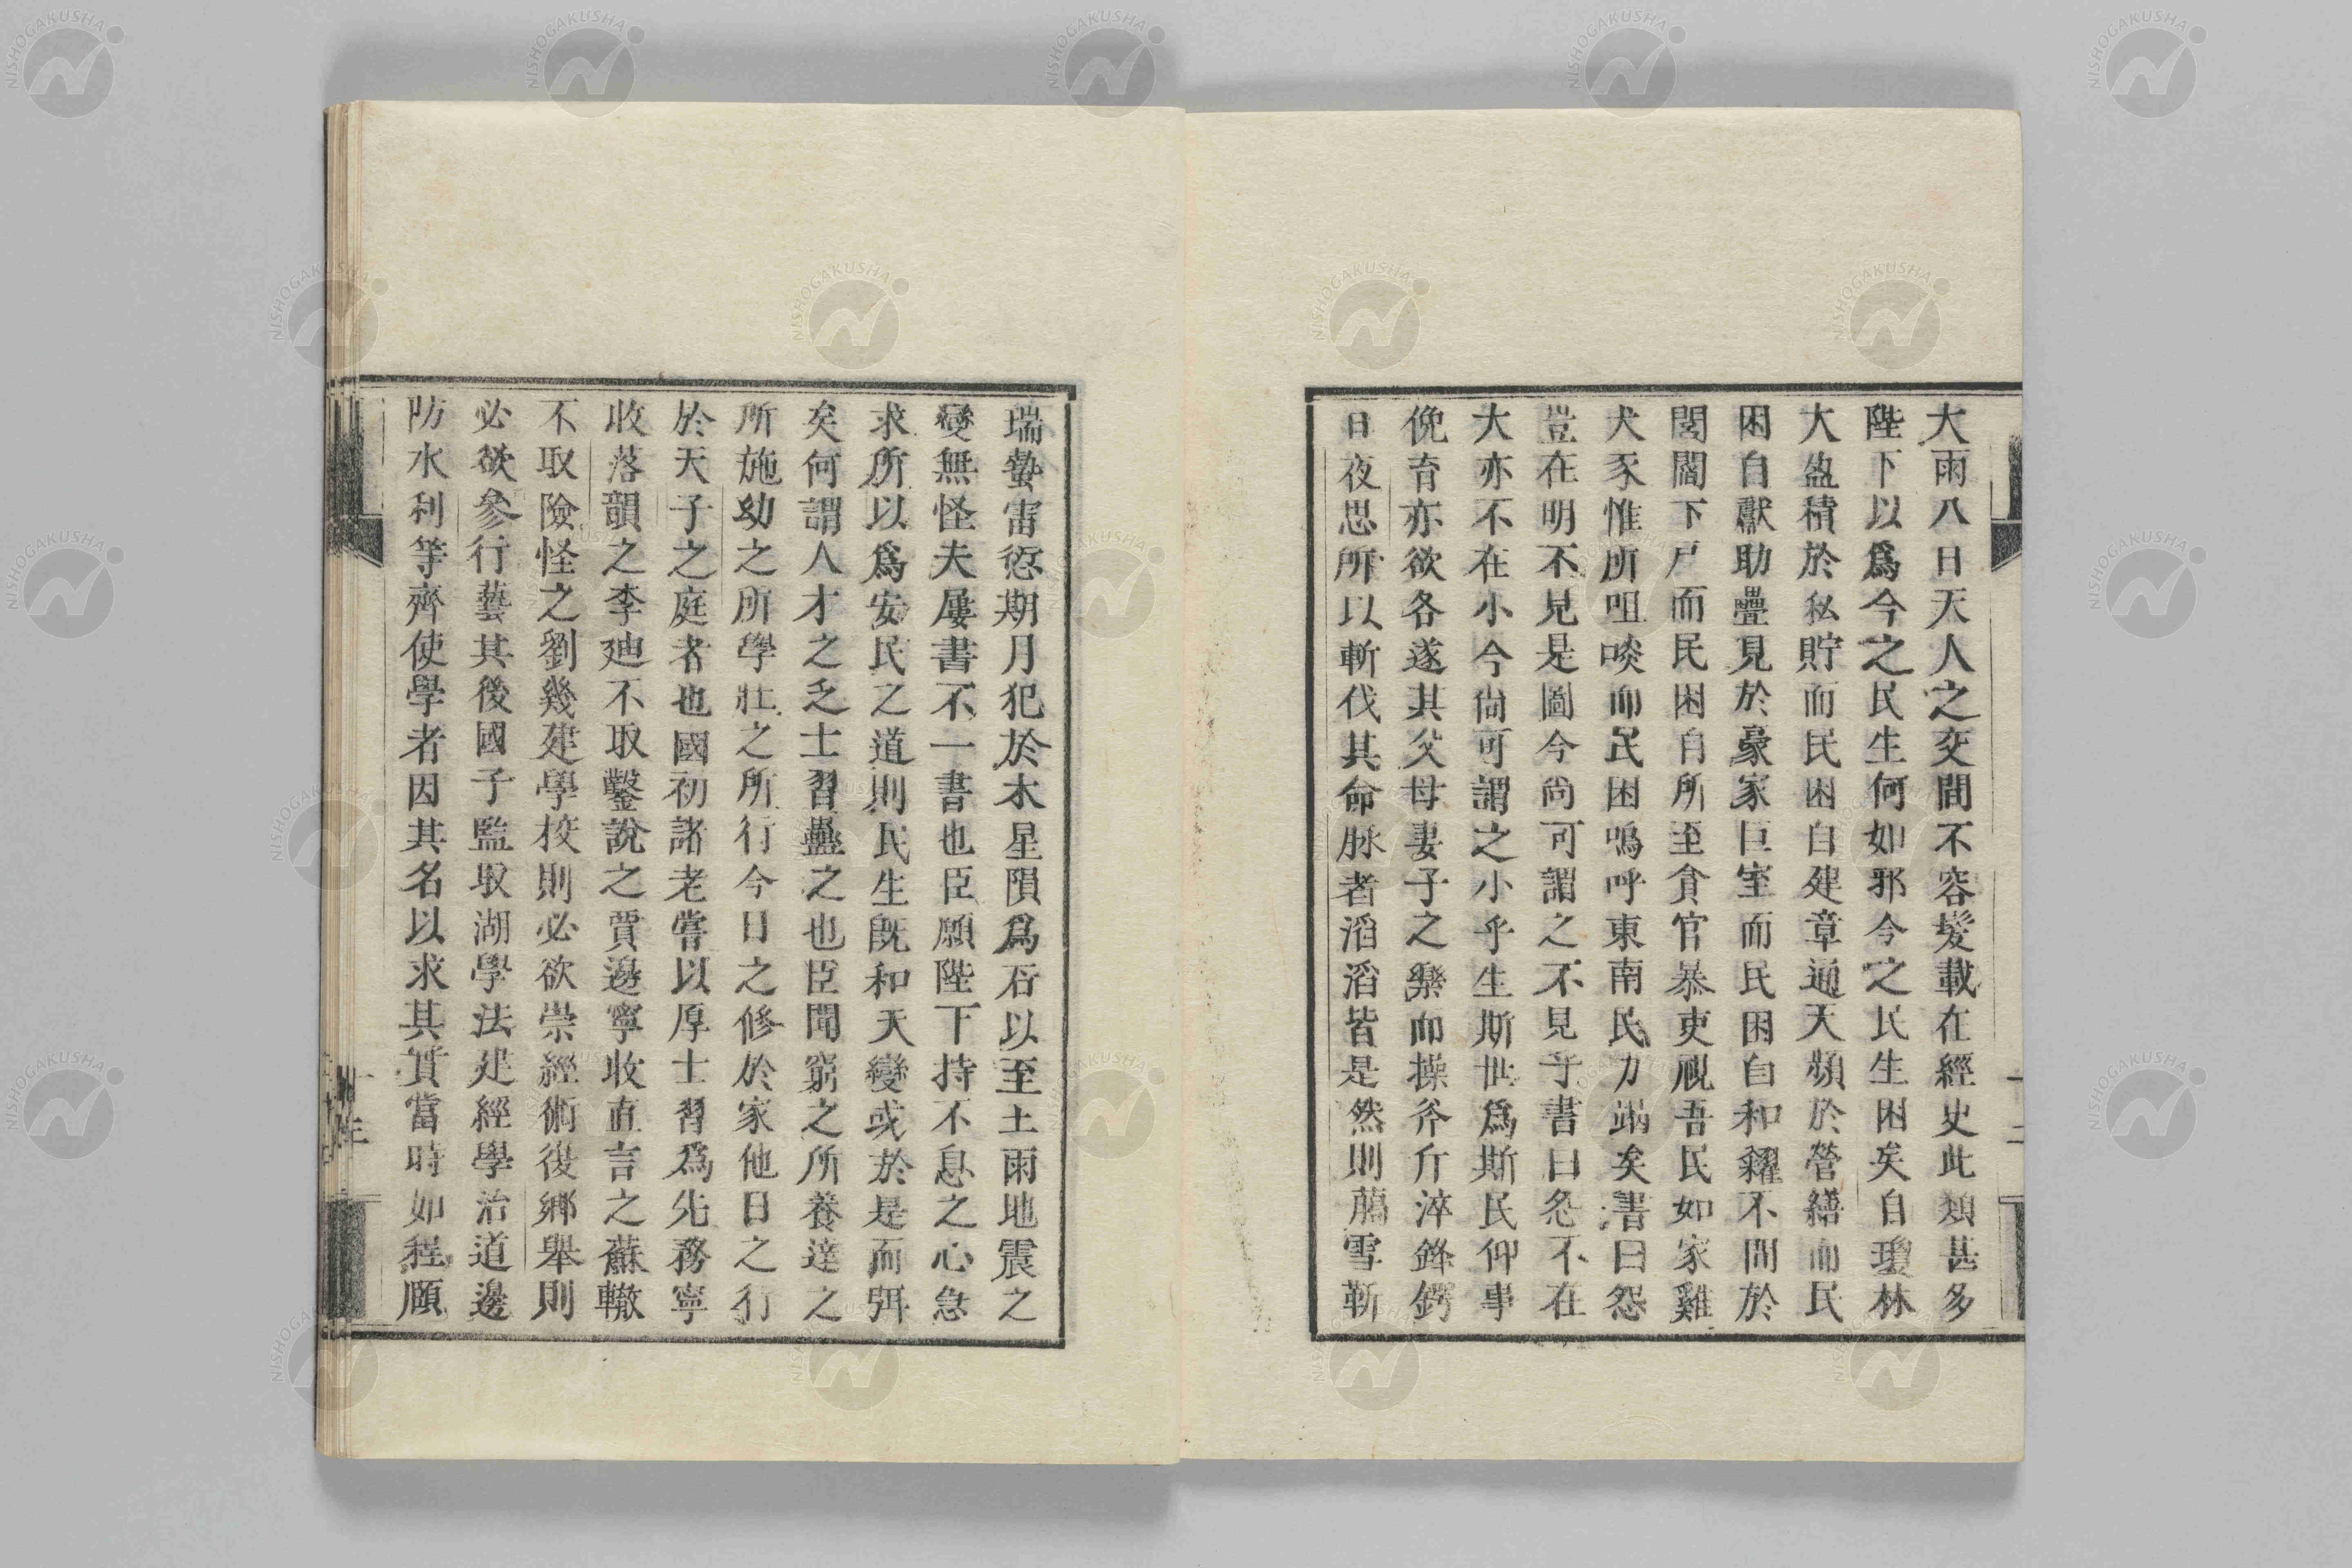 大雨八日天人之交間不容髮載在經史此類甚多
陛下以爲今之民生何如邪今之民生困矣自瓊林
大盈積於私貯而民困自建章通天頻於營繕而民
困自獻助疊見於豪家巨室而民困自和糴不間於
閭閻下戶而民困自所至貪官暴吏視吾民如家雞
犬豕惟所咀啖而民困嗚呼東南民力竭矣書曰怨
豈在明不見是圖今尚可謂之不見乎書曰怨不在
大亦不在小今尚可謂之小乎生斯世爲斯民仰事
俛育亦欲各遂其父母妻子之樂而操斧斤淬鋒鍔
日夜思所以斬伐其命脉者滔滔皆是然則臈雪靳
瑞蟄雷愆期月犯於木星隕爲石以至土雨地震之
變無怪夫屢書不一書也臣願陛下持不息之心急
求所以爲安民之道則民生旣和天變或於是而弭
矣何謂人才之乏士習蠱之也臣聞窮之所養達之
所施幼之所學壯之所行今日之修於家他日之行
於天子之庭者也國初諸老嘗以厚士習爲先務寧
收落韻之李廸不取鑿說之賈邊寧收直言之蘇轍
不取險怪之劉幾建學校則必欲崇經術復鄉舉則
必欲參行藝其後國子監取湖學法建經學治道邊
防水利等齊使學者因其名以求其實當時如程頤
NISHOGAKUSHA